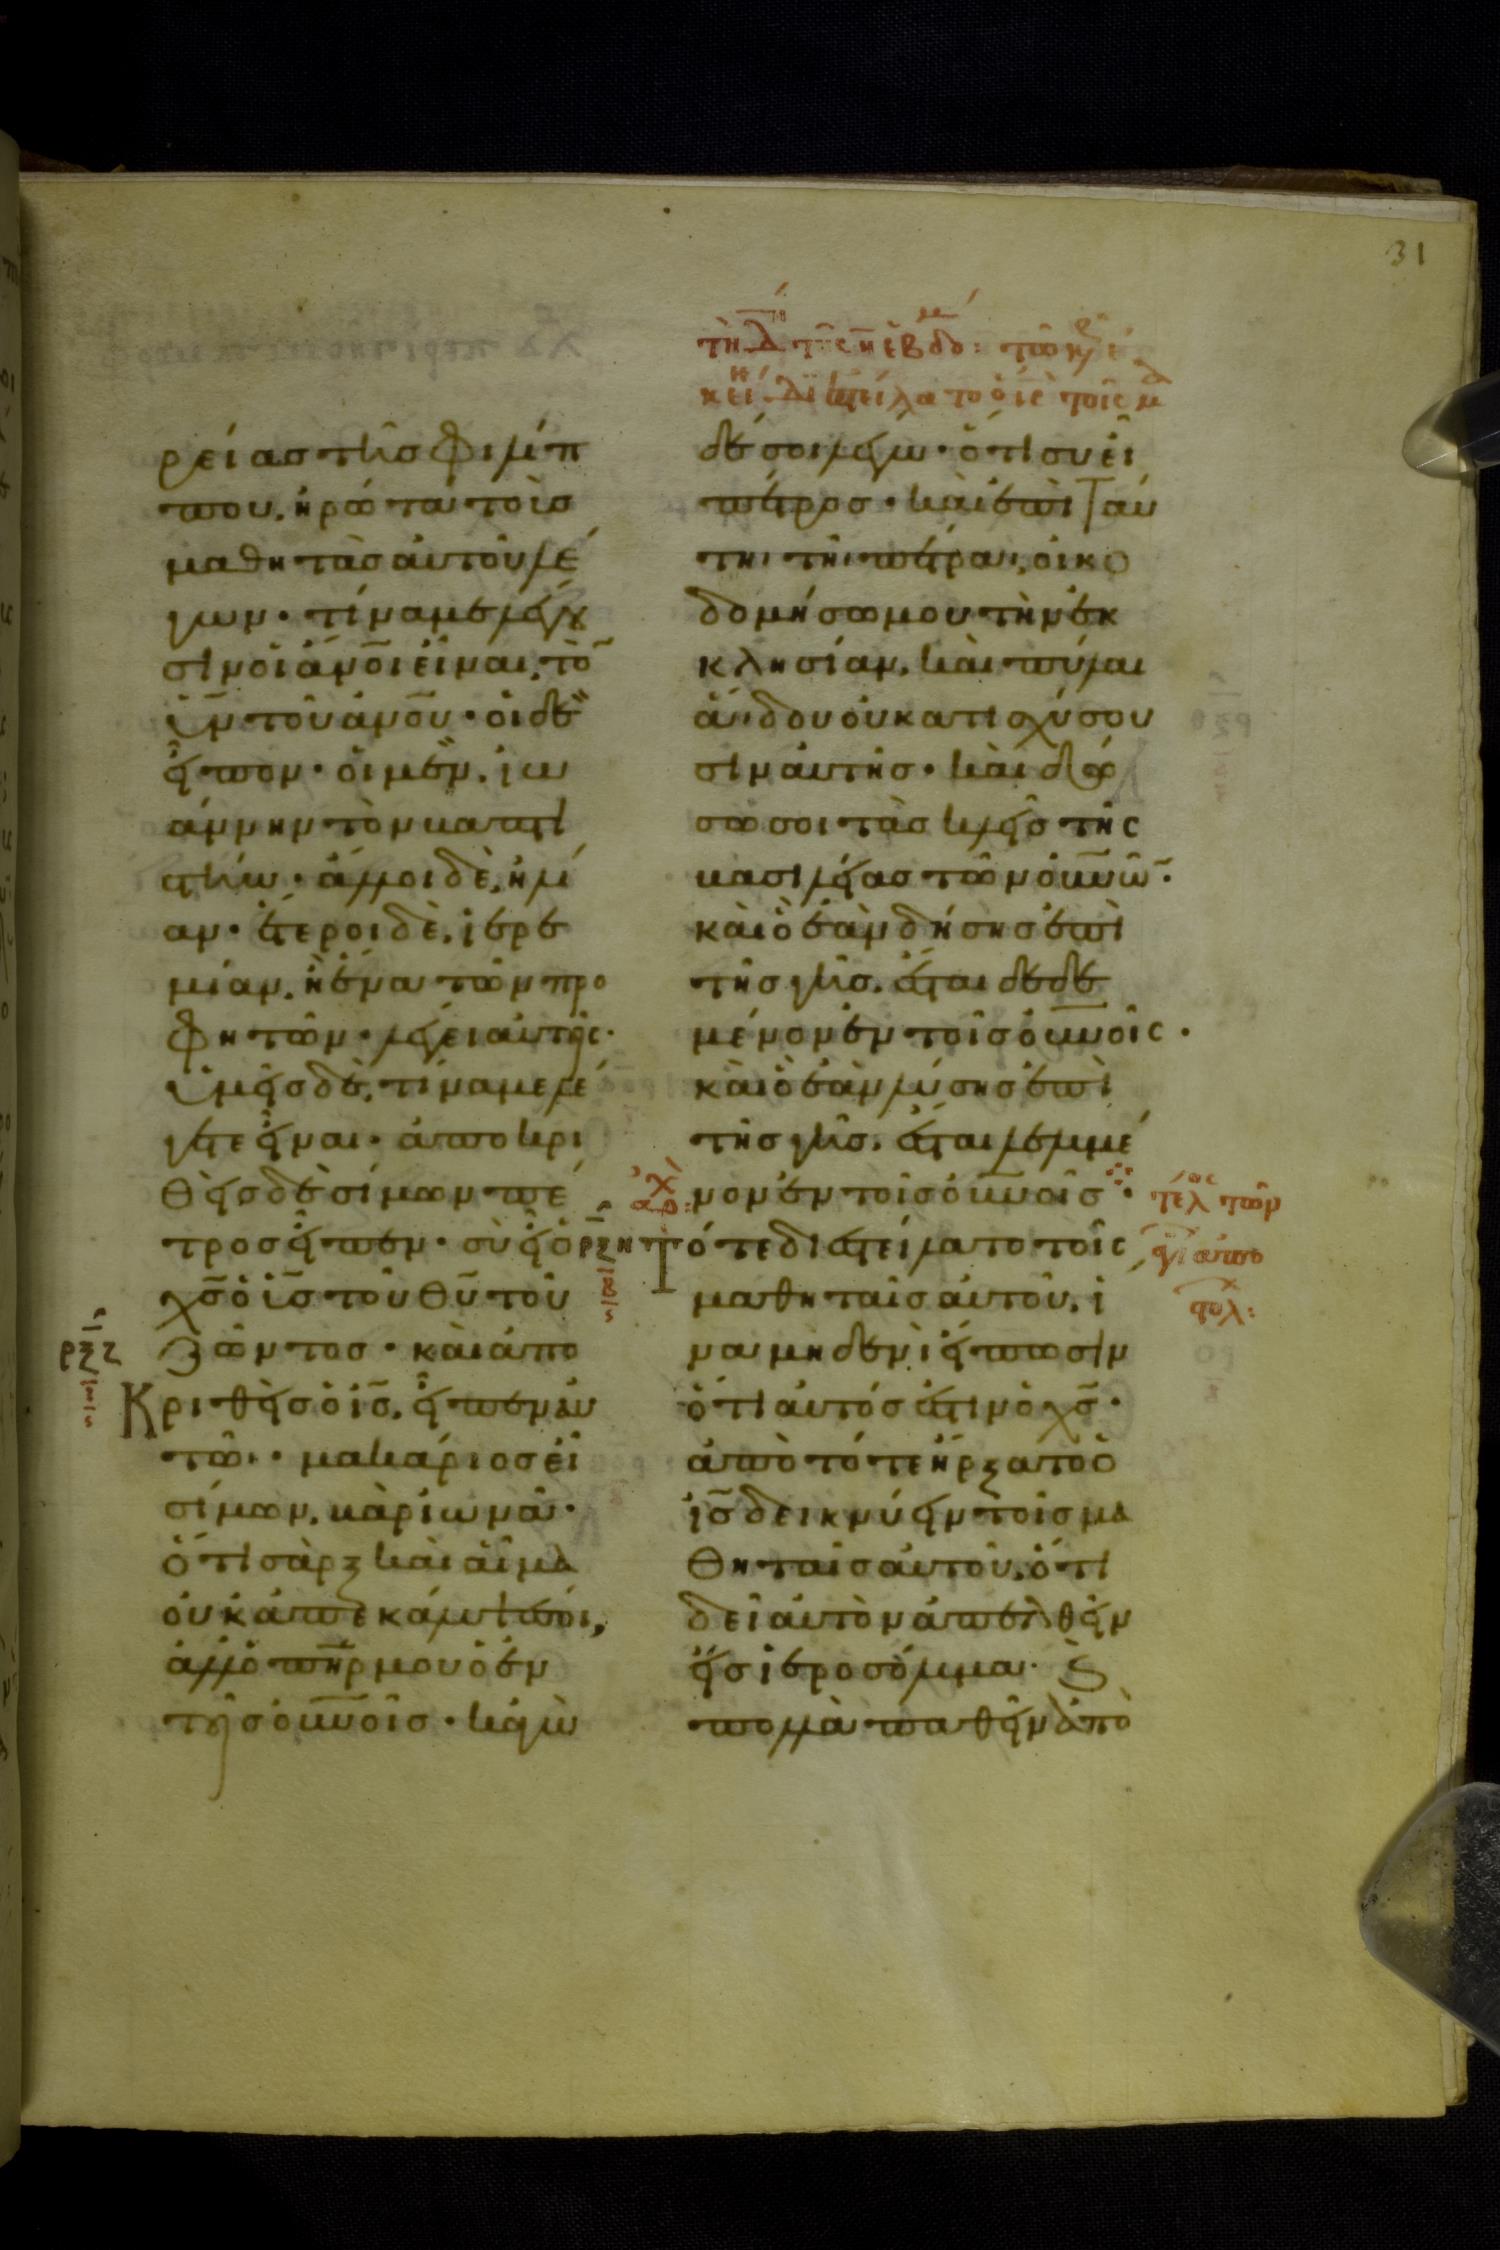 31
ρείας τῆς φιλίπ
που. ἠρώτα τοὺσ
μαθητὰσ ἀυτοῦ λέ
γων · τίνα με λέγου
σιν ὁι ἄνοι εἶναι, τὸ̄
ὑν τοῦ ἀνου · ὁι δὲ
εἶπον · ὁι μὲν, ἰω
άννην τὸν βαπτι
στήν · ἄλλοι δὲ, ἠλί
αν · ἕτεροι δὲ, ἱερε
μίαν, ἢ ἕνα τῶν προ
φητῶν · λέγει ἀυτοῖς ·
ὑμεῖσ δὲ, τίνα με λέ
γετε εἶναι · ἀποκρι
θεὶσ δὲ σίμων πέ
τροσ εἶπεν · σὺ εἶ ὁ
χσ ὁ ισ τοῦ θυ τοῦ
ζῶντοσ · καὶ ἀπο
ρξζ
Κριθεὶσ ὁ ισ, εἶπεν ἀυ
τῶι · μακάριοσ εἶ
σίμων, βὰρ ἰωνᾶ ·
ὅτι σὰρξ καὶ αἷμα
ὀυκ ἀπεκάλυψέ σοι,
ἀλλ' ὁ πηρ μου ὁ ἐν
τοῖσ ὀυνοῖσ · κἀγὼ
τῆ δ τῆς η ἑβδο : τῶ κ ε
δέ σοι λέγω · ὅτι σὺ εἶ
πέτροσ · καὶ ἐπὶ ταύ
τηι τῆι πέτραι, οἰκο
δομήσω μου τὴν ἐκ
κλησίαν, καὶ πύλαι
ἅιδου ὀυ κατισχύσου
σιν ἀυτῆσ · καὶ δώ
σω σοι τὰσ κλεῖσ τῆς
βασιλείασ τῶν ὀυνῶ̄ ·
καὶ ὃ ἐὰν δήσησ ἐπὶ
τῆσ γῆσ, ἔσται δεδε
μένον ἐν τοῖσ ὀυνοῖς ·
καὶ ὃ ἐὰν λύσησ ἐπὶ
τῆσ γῆσ, ἔσται λελυμέ
νον ἐν τοῖσ ὀυνοῖσ ·
ἀρχ
τέλος τῶν
ρξη
Τότε διεστείλατο τοῖς
ἁγί ἀπο
στολ :
μαθηταῖσ ἀυτοῦ, ἵ
να μηδενὶ εἴπωσιν
ὅτι ἀυτόσ ἐστιν ὁ χσ ·
ἀπὸ τότε ἤρξατο ὁ
ισ δεικνύειν τοῖσ μα
θηταῖσ ἀυτοῦ, ὅτι
δεῖ ἀυτὸν ἀπελθεῖν
εἰσ ἱεροσόλυμα · ϗ
πολλὰ παθεῖν ἀπὸ